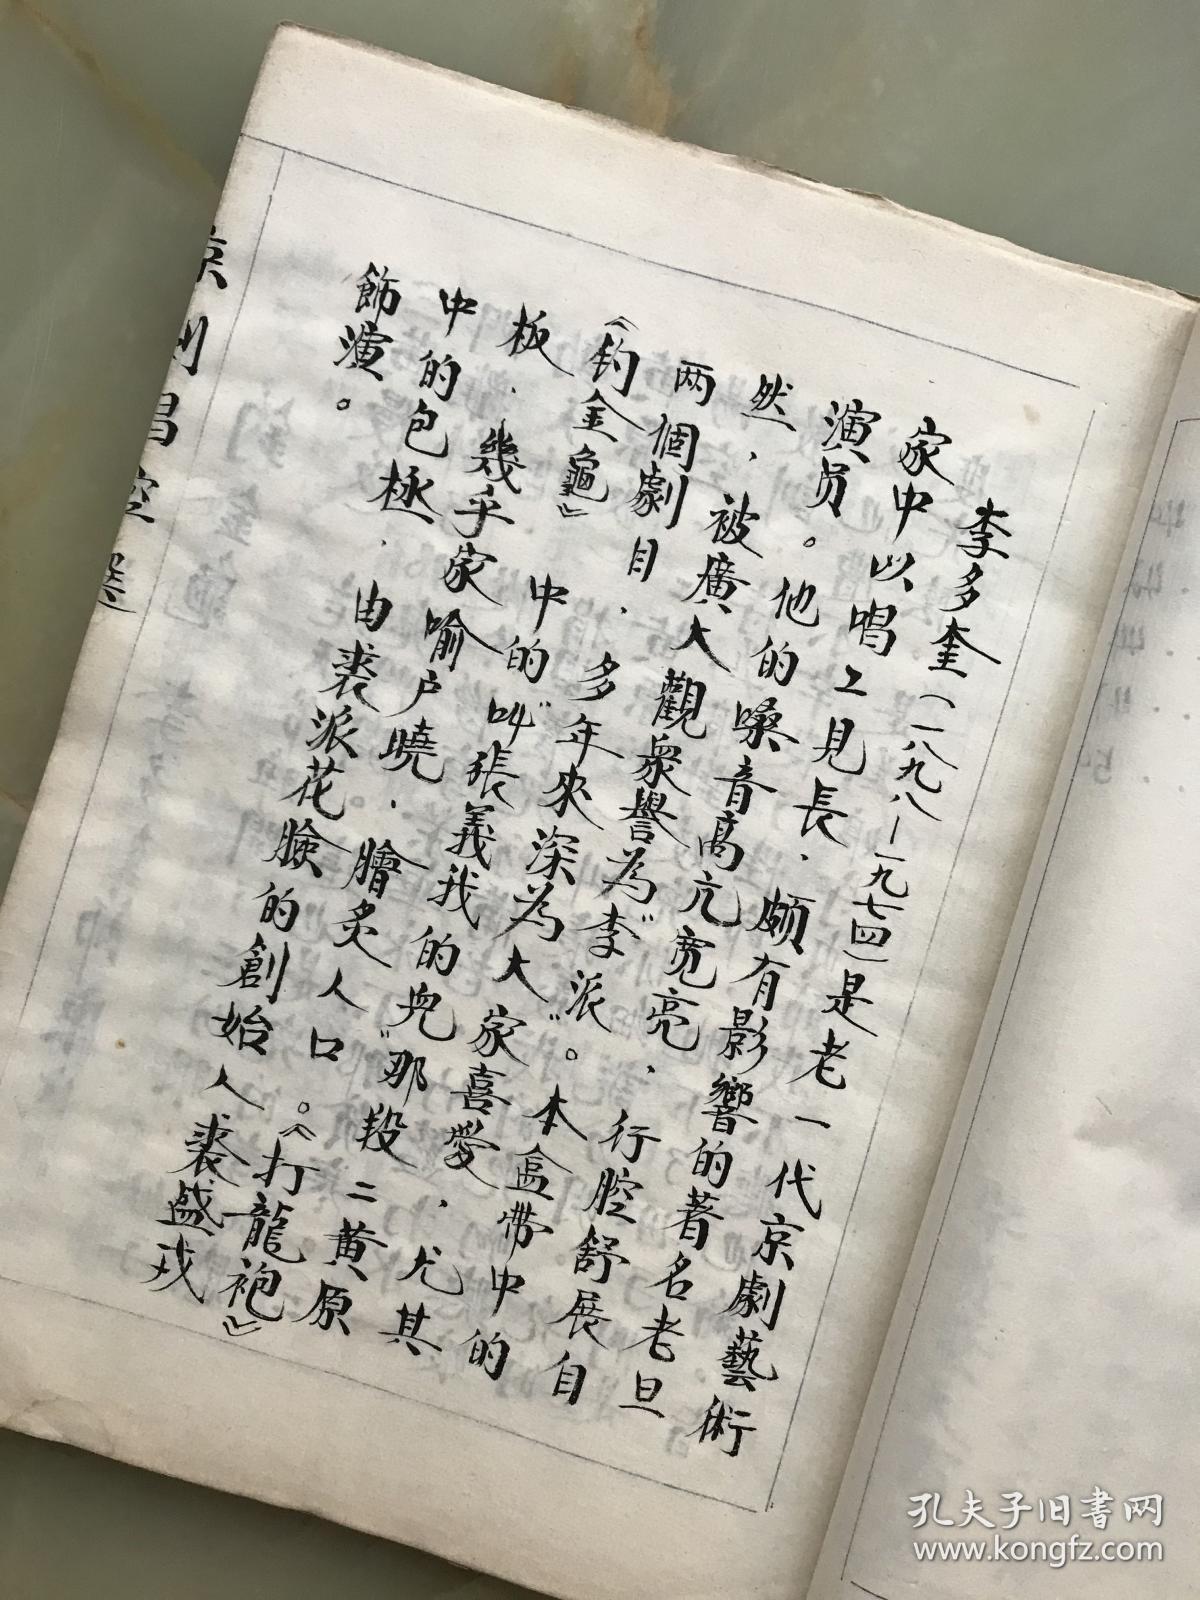 李多奎(一八九八—一九七四)是老一代京劇藝術
家中以唱工見長，頗有影響的著名老旦
演员。他的嗓音高亢宽亮，行腔舒展自
然，被廣大觀衆譽為"李派"。本盒帶中的
两個劇目，多年來深為大家喜愛，尤其
《钓金龜》中的"叫張義我的兒"那段二黄原
板，幾乎家喻户曉，膾炙人口。《打龍袍》
中的包拯，由裘派花臉的創始人裘盛戎
飾演。
孔夫子旧书网
www.kongfz.com